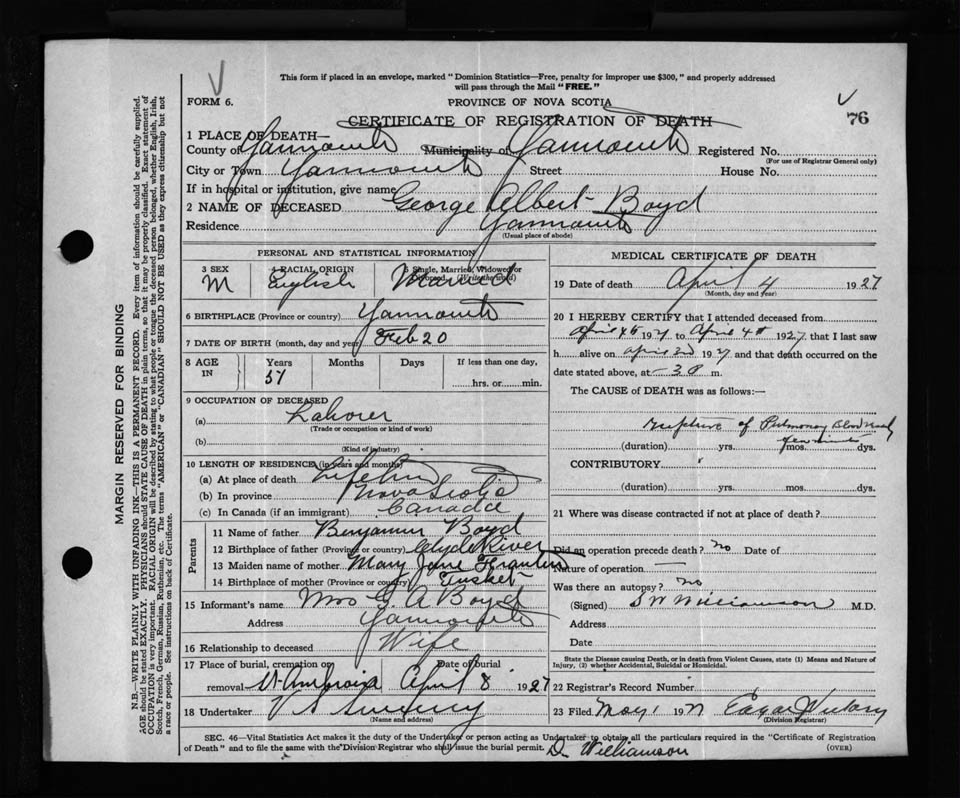 This form if placed in an envelope, marked "Dominion Statistics—Free, penalty for improper use $300," and properly addressed
will pass through the Mail "FREE."
FORM 6.
PROVINCE OF NOVA SCOTIA
CERTIFICATE OF REGISTRATION OF DEATH
76
1 PLACE OF DEATH—
County of Yarmouth Municipality of Yarmouth Registered No.
(For use of Registrar General only)
City or Town Yarmouth Street House No.
If in hospital or institution, give name
2 NAME OF DECEASED George Albert Boyd
Residence Yarmouth
(Usual place of abode)
PERSONAL AND STATISTICAL INFORMATION
3 SEX M
4 RACIAL ORIGIN English
5 Single, Married, Widowed or Divorced (Write the word) Married
6 BIRTHPLACE (Province or country) Yarmouth
7 DATE OF BIRTH (month, day and year) Feb 20
8 AGE IN Years 57 Months Days If less than one day,
hrs. or min.
9 OCCUPATION OF DECEASED
(a) Labourer
(Trade or occupation or kind of work)
(b)
(Kind of industry)
10 LENGTH OF RESIDENCE (in years and months)
(a) At place of death Lifetime
(b) In province Nova Scotia
(c) In Canada (if an immigrant) Canada
Parents
11 Name of father Benjamin Boyd
12 Birthplace of father (Province or country) Clyde River
13 Maiden name of mother Mary Jane
14 Birthplace of mother (Province or country) Tusket
15 Informant's name Mrs G. A Boyd
Address Yarmouth
16 Relationship to deceased Wife
17 Place of burial, cremation or removal
Date of burial April 8 1927
18 Undertaker V S Sweeny
(Name and address)
MEDICAL CERTIFICATE OF DEATH
19 Date of death April 4 1927
(Month, day and year)
20 I HEREBY CERTIFY that I attended deceased from
April 4th 1927 to April 4th 1927 that I last saw
h alive on April 1927 and that death occurred on the
date stated above, at m.
The CAUSE of DEATH was as follows:—
rupture of Pulmonary Blood
(duration) yrs. mos. dys.
CONTRIBUTORY
(duration) yrs. mos. dys.
21 Where was disease contracted if not at place of death?
Did an operation precede death? no Date of
Nature of operation —
Was there an autopsy? no
(Signed) S W Williamson M.D.
Address
Date
State the Disease causing Death, or in death from Violent Causes, state (1) Means and Nature of
Injury, (2) whether Accidental, Suicidal or Homicidal.
22 Registrar's Record Number
23 Filed May 1 1927 Edgar
(Division Registrar)
SEC. 46—Vital Statistics Act makes it the duty of the Undertaker or person acting as Undertaker to obtain all the particulars required in the "Certificate of Registration
of Death" and to file the same with the Division Registrar who shall issue the burial permit. D. Williamson (OVER)
MARGIN RESERVED FOR BINDING
N.B.—WRITE PLAINLY WITH UNFADING INK—THIS IS A PERMANENT RECORD. Every item of information should be carefully supplied.
AGE should be stated EXACTLY. PHYSICIANS should STATE CAUSE OF DEATH in plain terms, so that it may be properly classified. Exact statement of
OCCUPATION is very important. RACIAL ORIGIN will be described by stating to what people or tongue the deceased person belonged, whether English, Irish,
Scotch, French, German, Russian, Ruthenian, etc. The terms "AMERICAN" or "CANADIAN" SHOULD NOT BE USED as they express citizenship but not
a race or people. See instructions on back of Certificate.